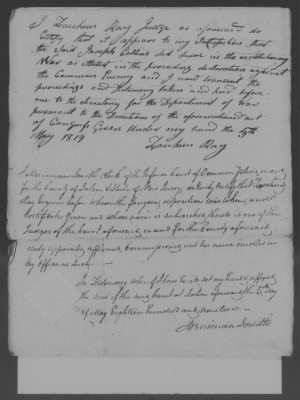 I Zaccheus Ray Judge as aforesaid do
Certify that it appears to my Satisfaction that
the Said Joseph Collins did Serve in the revolutionary
War as Stated in the preceding declaration against
the Common Enemy and I now transmit the
proceedings and testimony taken and had before
me to the Secretary for the Department of War
pursuant to the Directions of the aforementioned act
of Congress Given under my hand the 5th
May 1819
Zaccheus Ray
Smith Clerk of the Inferior Court of Common Pleas, in and
for the County of Salem & State of New Jersey, do hereby Certify that Zaccheus
Ray Esquire before whom the foregoing depositions was taken, and
Certificate Given and whose name is subscribed thereto is one of the
Judges of the Court aforesaid, in and for the County aforesaid,
duly appointed, affirmed, Commissioned and
my Office as Such.
In Testimony whereof I have hereto set my hand & affixed
the Seal of the said Court at Salem aforesaid the 5th day
of May Eighteen hundred and nineteen
Smith